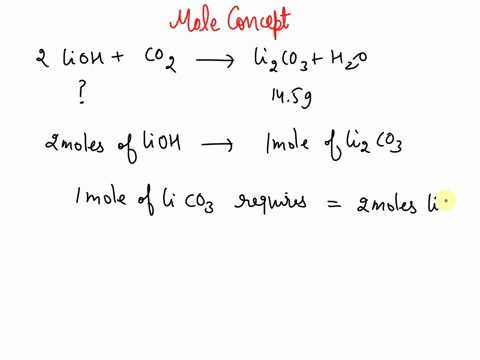 Mole Concept
2 LiOH + CO2 → Li2CO3 + H2O
? 14.5g
2moles of LiOH → 1mole of Li2 CO3
1mole of Li CO3 requires = 2moles Li